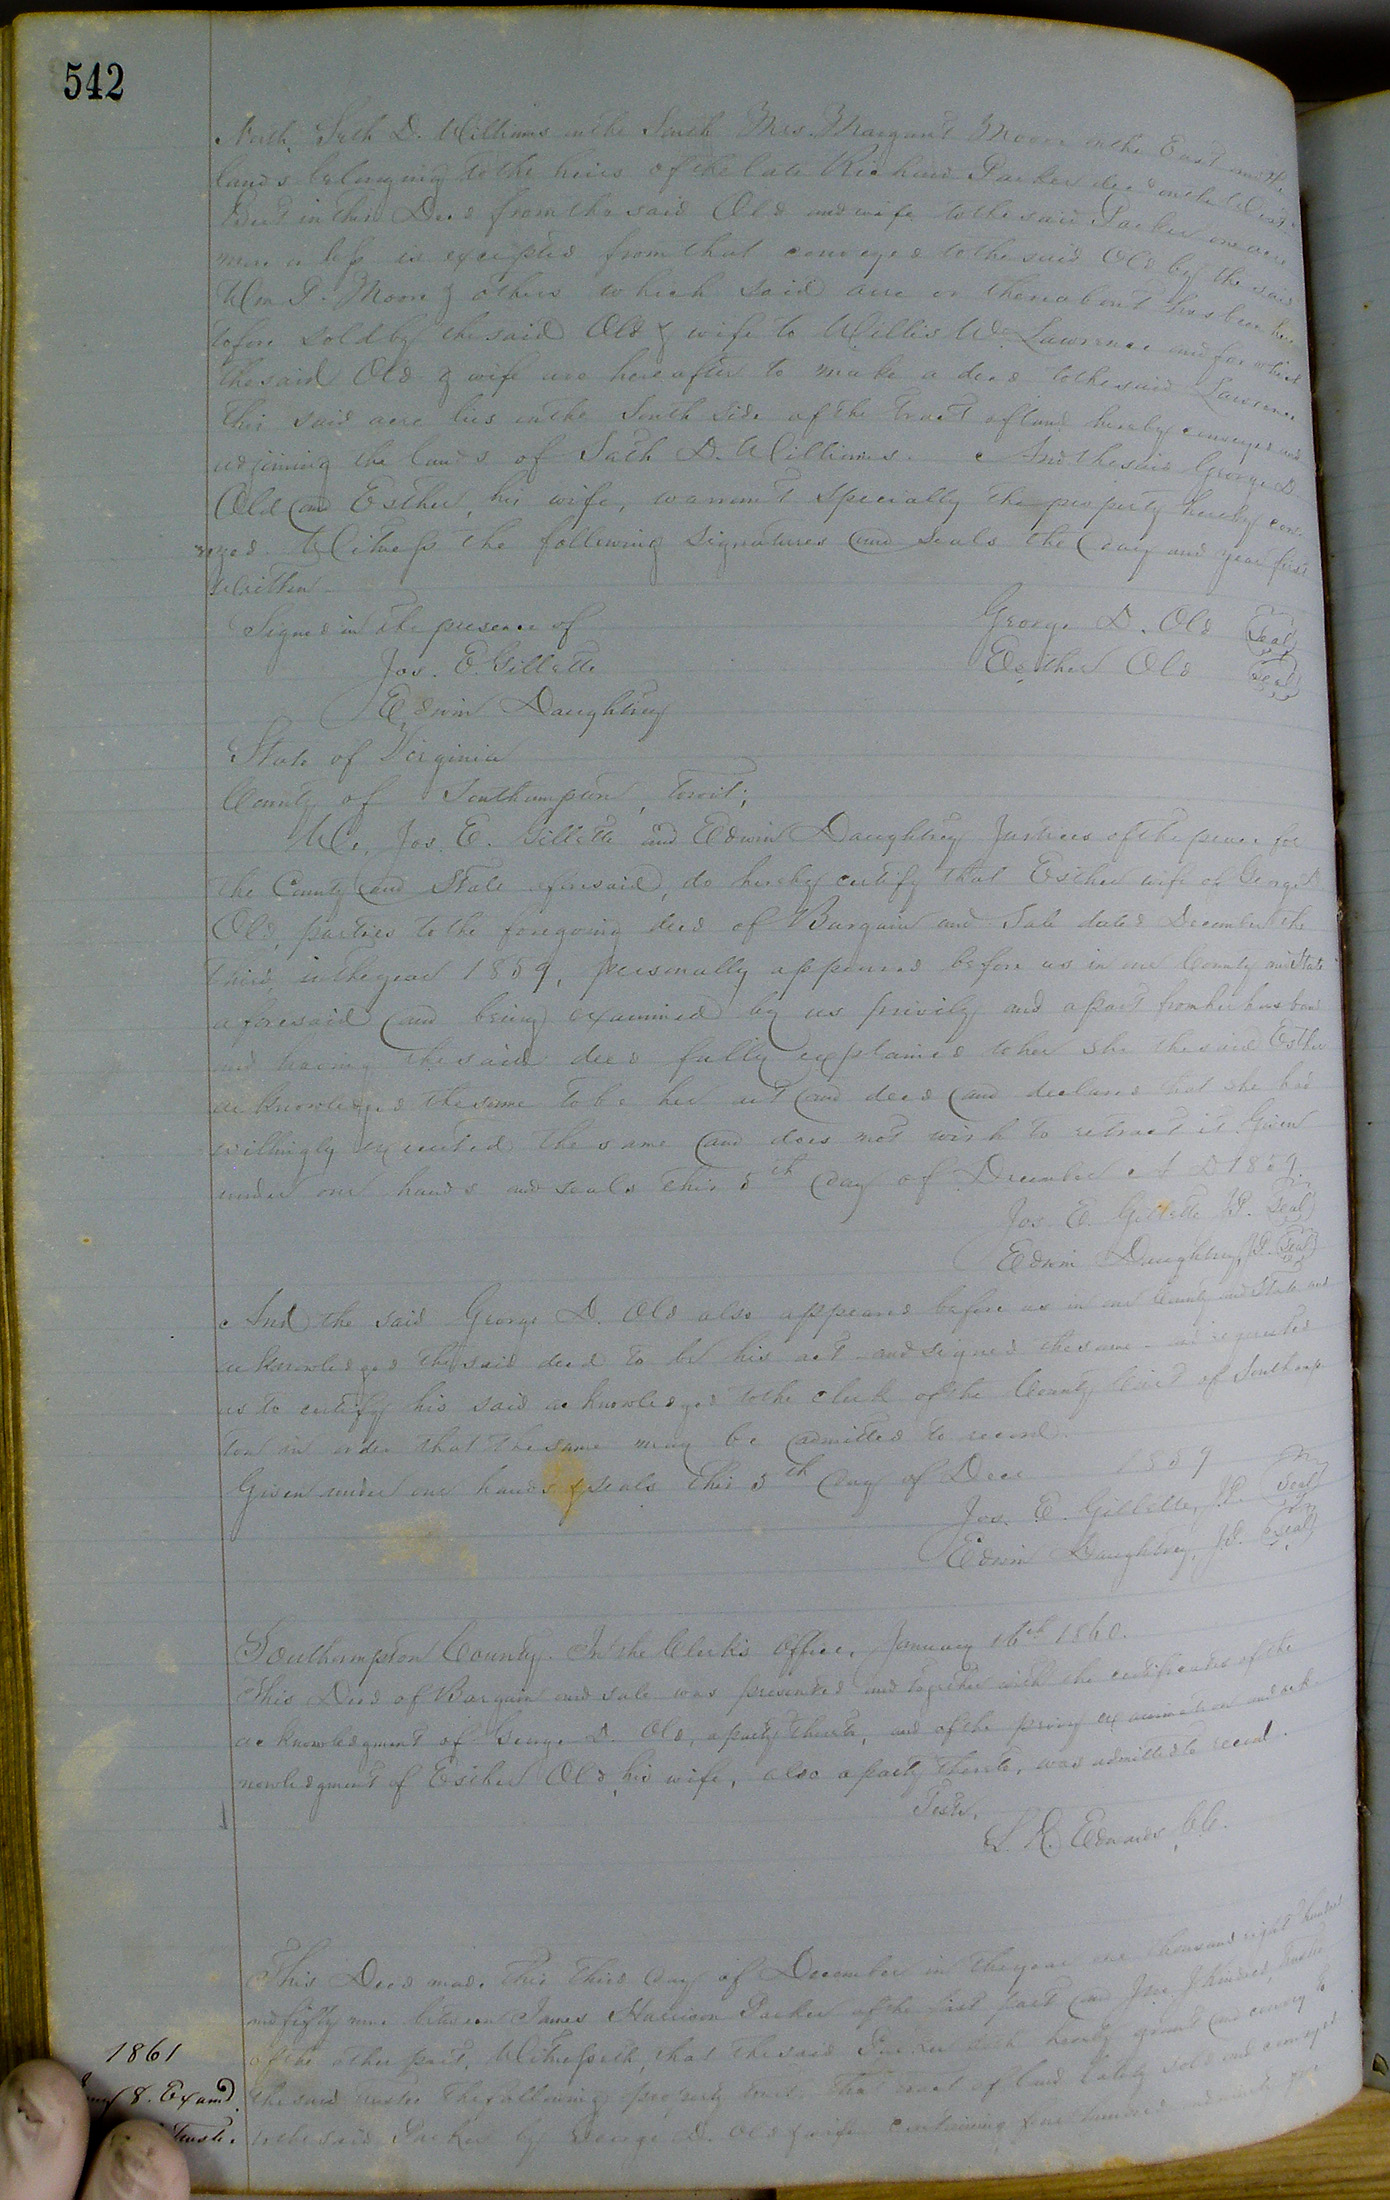 542
North, Seth D. Williams on the South Mrs. Margaret Moore on the East and the
lands belonging to the heirs of the late Richard Parker decd on the West.
But in this Deed from the said Old and wife to the said Parker one acre
more or less is excepted from that conveyed to the said Old by the said
Wm P. Moore & others which said acre or thereabout has been here
tofore sold by the said Old & wife to Willis W. Lawrence and for which
the said Old & wife are hereafter to make a deed to the said Lawrence
this said acre lies on the South side of the tract of land hereby conveyed and
adjoining the lands of Seth D. Williams. And the said George D.
Old and Esther, his wife, warrant specially the property hereby con-
veyed. Witness the following signatures and seals the day and year first
written
Signed in the presence of George D. Old Seal
Jos. E. Gillette Esther Old Seal
Edwin Daughtrey
State of Virginia
County of Southampton, towit;
We, Jos. E. Gillette and Edwin Daughtrey Justices of the peace for
the County and State aforesaid, do hereby certify that Esther wife of George D
Old, parties to the foregoing deed of Bargain and Sale dated December the
third, in the year 1859, personally appeared before us in our County and State
aforesaid and being examined by us privily and apart from her husband
and having the said deed fully explained to her she the said Esther
acknowledged the same to be her act and deed and declared that she had
willingly executed the same and does not wish to retract it. Given
under our hands and seals this 5th day of December A D 1859.
Jos. E. Gillette J.P. Seal
Edwin Daughtrey, J.P. Seal
And the said George D. Old also appeared before us in our County and State and
acknowledged the said deed to be his act and signed the same and requested
us to certify his said acknowledged to the clerk of the County Court of Southamp
ton in order that the same may be admitted to record.
Given under our hands & seals this 5th day of Decr 1859
Jos. E. Gillette, J.P. Seal
Edwin Daughtrey, J.P. Seal
Southampton County. In the Clerk's Office, January 16th 1860.
This Deed of Bargain and sale was presented and together with the certificates of the
acknowledgment of George D. Old, a party thereto, and of the privy examination and ack
nowledgment of Esther Old, his wife, also a party thereto, was admitted to record.
Teste,
L. R. Edwards C.C.
This Deed made this third day of December in the year one thousand eight hundred
and fifty nine between James Harrison Parker of the first part and Jno. J. Kindred, Trustee
of the other part, Witnesseth, that the said Parker doth hereby grant and convey to
1861
the said Trustee the following property towit, The tract of land lately sold and conveyed
8. Examd.
to the said Parker by George D. Old & wife containing four hundred and ninety
Truste.